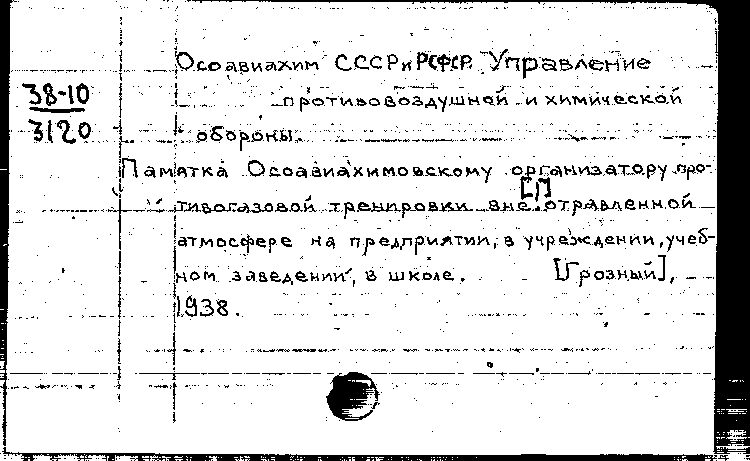 Осоавиахим СССР и РСФСР. Управление
38-10
противовоздушной и химической
3120
обороны.
Памятка Осоавиахимовскому организатору про-
[!]
тивогазовой тренировки вне отравленной
атмосфере на предприятии, в учреждении, учеб-
ном заведении, в школе. [Грозный],
1938.